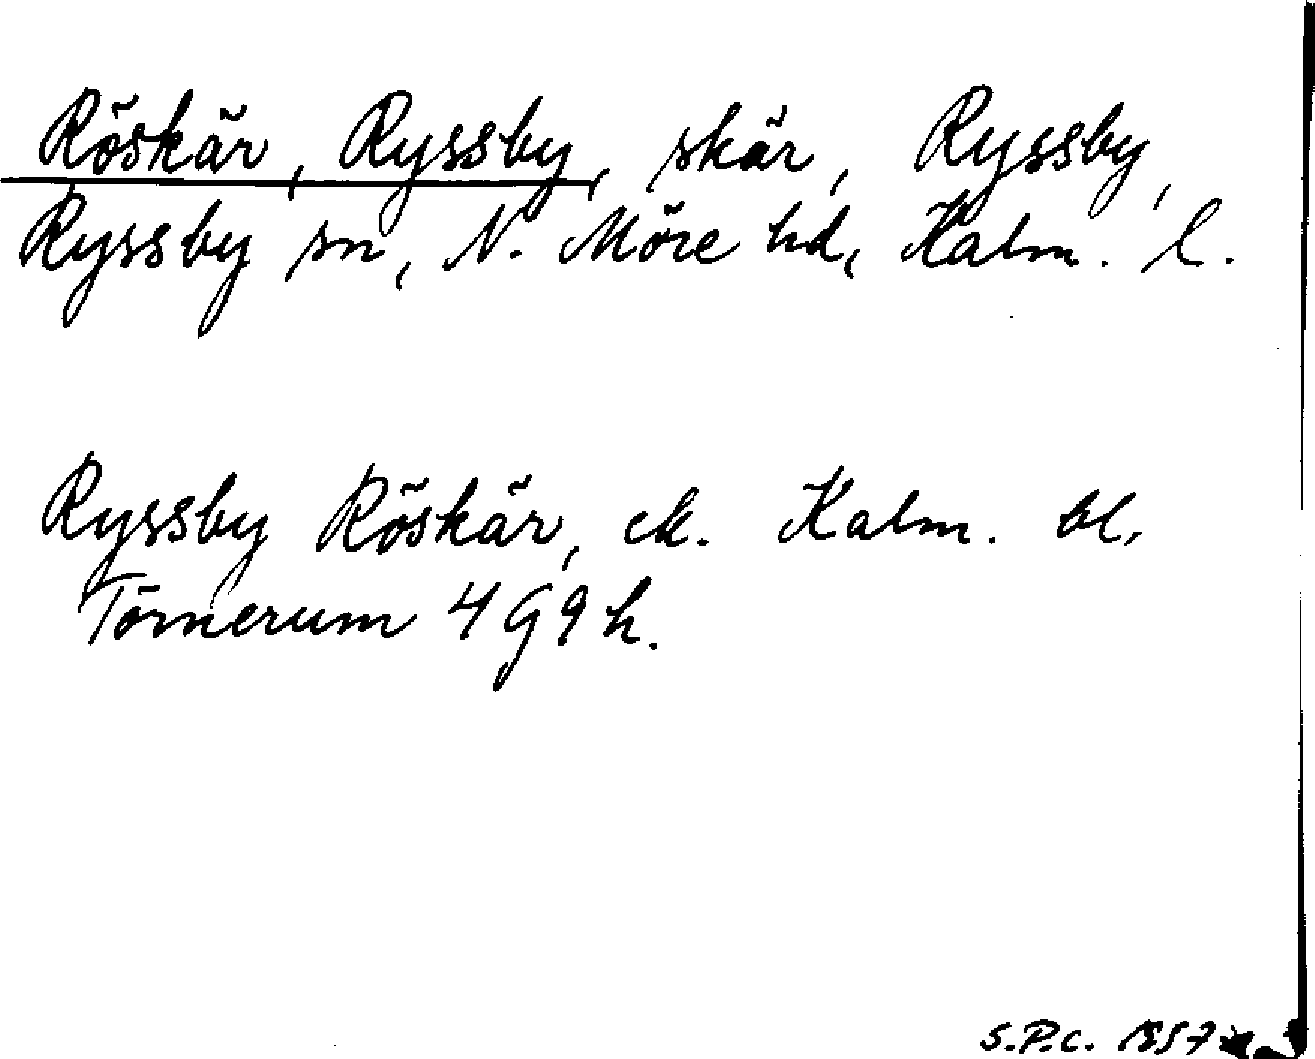 Röskär, Ryssby, skär, Ryssby,
Ryssby sn, N. Möre hd, Kalm. l.
Ryssby Röskär, ek. Kalm. bl.
Törnerum 4 G 9 h.
S.P.C.